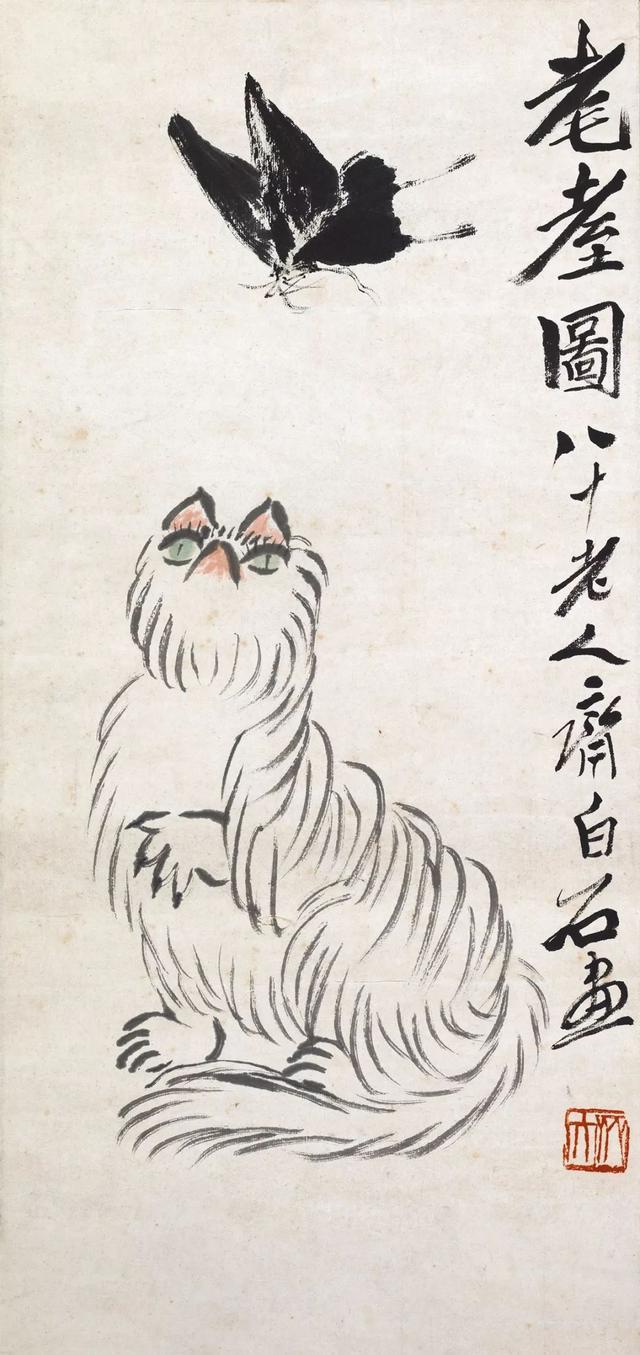 耄耋圖八十老人齊白石畫